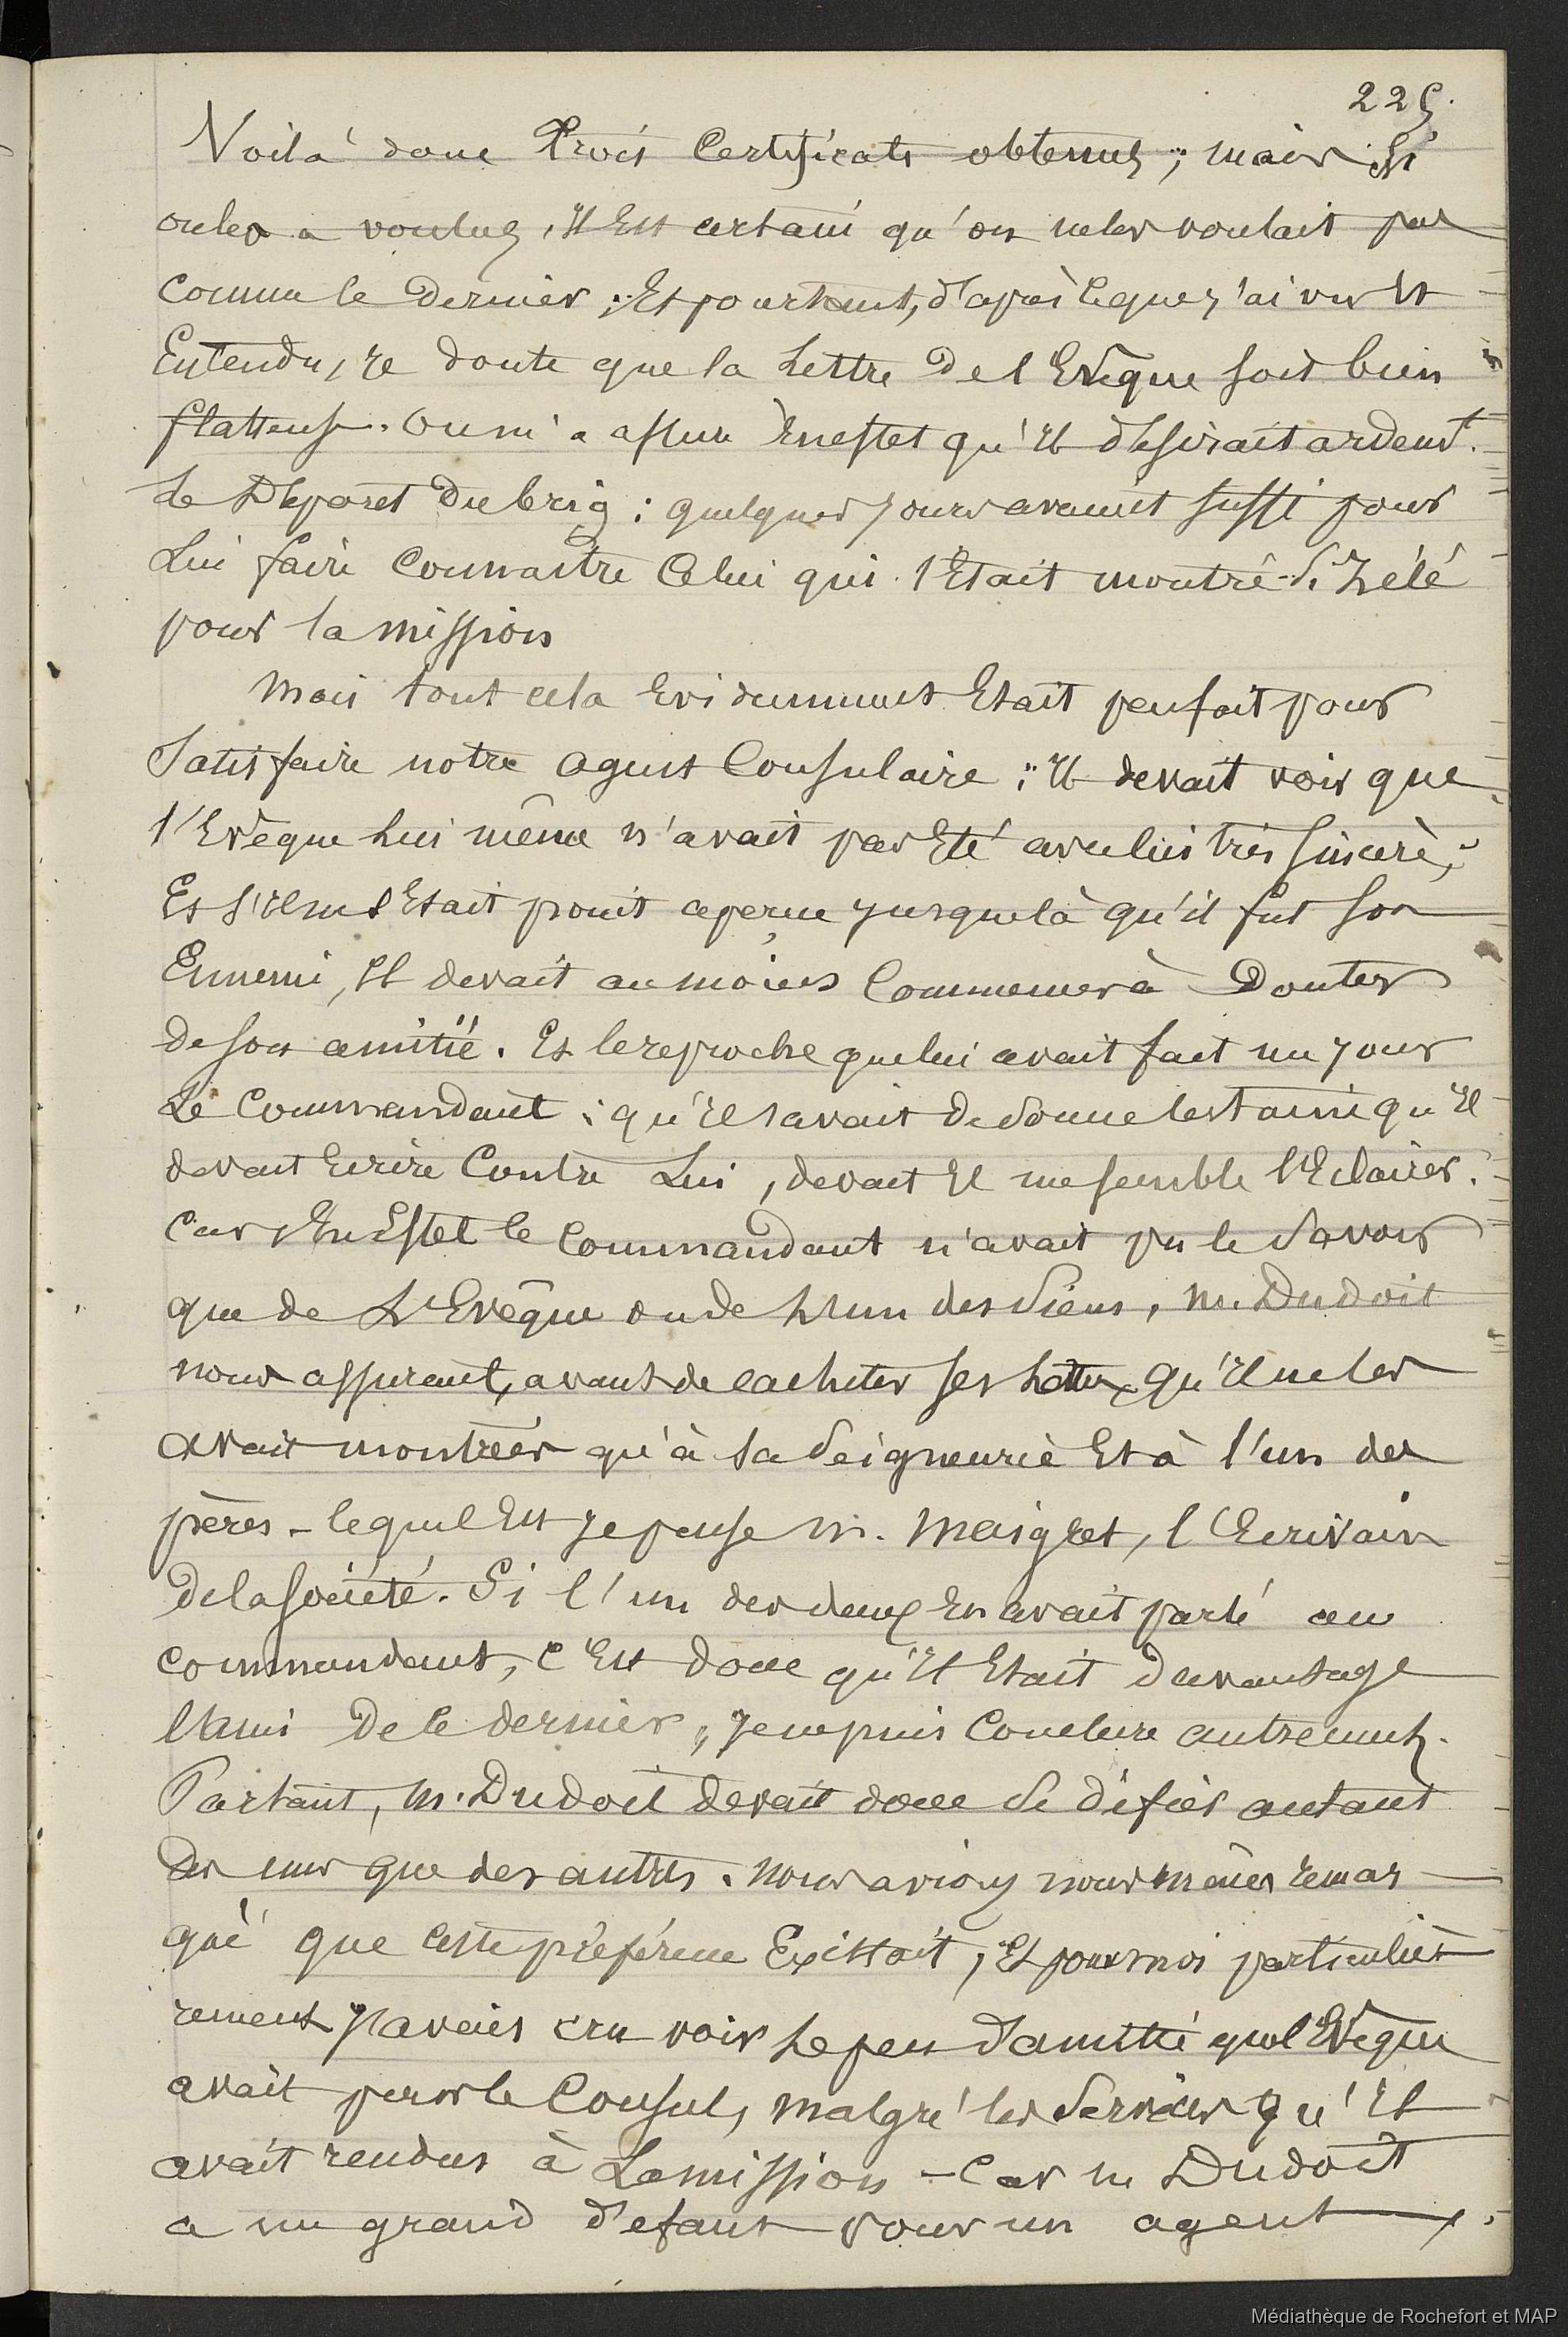 225.
Voilà donc trois Certificats obtenus ; mais Si
on les a voulus, il Est certain qu'on ne les voulait pas
comme le Dernier ; Et pourtant, d'après ce que j'ai vu Et
Entendu, je doute que la Lettre de l'Evêque soit bien
flatteuse. On m'a assuré En effet qu'il désirait ardemt.
Le Départ Du brig ; quelques jours avaient suffi pour
Lui faire Connaître Celui qui s'Etait montré Si Zélé
pour la mission
Mais tout cela Evidemment Etait peu fait pour
Satisfaire notre agent Consulaire ; il devait voir que
l'Evêque Lui même n'avait pas Eté avec lui très sincère ;
Et s'il ne s'Etait point aperçu jusque là qu'il fut son
Ennemi, Il devait au moins Commencer à Douter
de son amitié. Et le reproche que lui avait fait un jour
Le Commandant ; qu'il savait de bonne part qu'il
devait Ecrire Contre Lui, devait il me semble l'Eclairer.
Car En Effet le Commandant n'avait pu le Savoir
que de L'Evêque ou de L'un des Siens, M. Dudoit
nous assurant, avant de cacheter ses Lettres, qu'il ne les
avait montrées qu'à Sa Seigneurie Et à l'un des
pères - lequel Est je pense M. Maigret, l'Ecrivain
de la société. Si l'un des deux En avait parlé au
commandant, c'Est donc qu'il Etait davantage
l'ami de ce dernier, je ne puis Conclure autrement.
Partant, M. Dudoit devait donc Se défier autant
des uns que des autres. Nous avions nous mêmes remar
qué que cette préférence Existait, Et pour moi particuliè
rement j'avais cru voir Le peu d'amitié que l'Evêque
avait pour le Consul, malgré les Services qu'il
avait rendus à La mission - Car M Dudoit
a un grand défaut pour un agent
Médiathèque de Rochefort et MAP